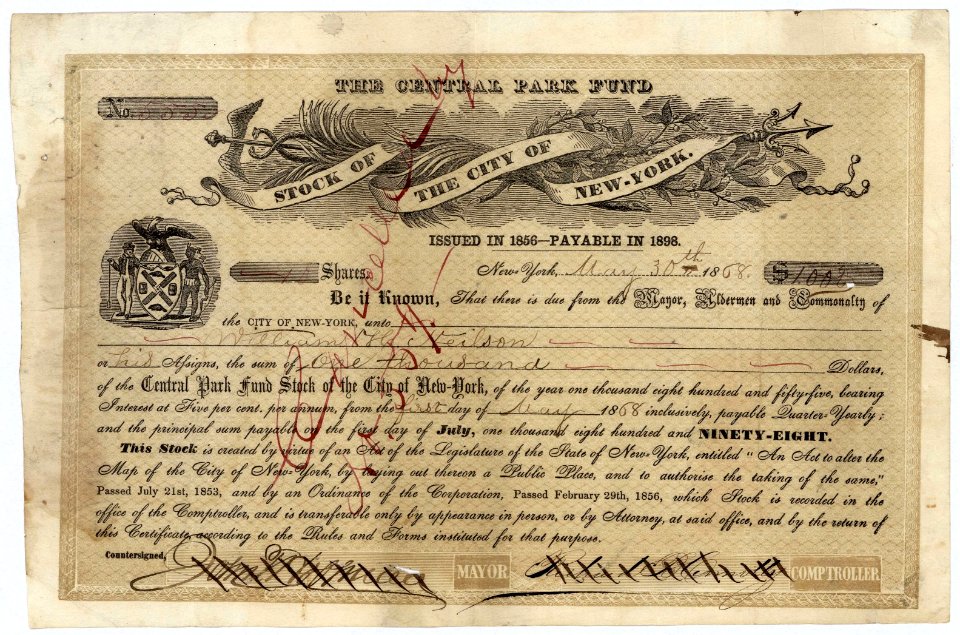 THE CENTRAL PARK FUND
No
STOCK OF THE CITY OF NEW-YORK.
ISSUED IN 1856—PAYABLE IN 1898.
1 Shares. New-York, May 30th 1868. $1000
Be it Known, That there is due from the Mayor, Aldermen and Commonalty of
the CITY OF NEW-YORK, unto
William H. Neilson
or his Assigns, the sum of One thousand Dollars,
of the Central Park Fund Stock of the City of New-York, of the year one thousand eight hundred and fifty-five, bearing
Interest at Five per cent. per annum, from the first day of May 1868 inclusively, payable Quarter-Yearly;
and the principal sum payable on the first day of July, one thousand eight hundred and NINETY-EIGHT.
This Stock is created by virtue of an Act of the Legislature of the State of New-York, entitled "An Act to alter the
Map of the City of New-York, by laying out thereon a Public Place, and to authorise the taking of the same,"
Passed July 21st, 1853, and by an Ordinance of the Corporation, Passed February 29th, 1856, which Stock is recorded in the
office of the Comptroller, and is transferable only by appearance in person, or by Attorney, at said office, and by the return of
this Certificate, according to the Rules and Forms instituted for that purpose.
Countersigned,
MAYOR
COMPTROLLER
Cancelled by